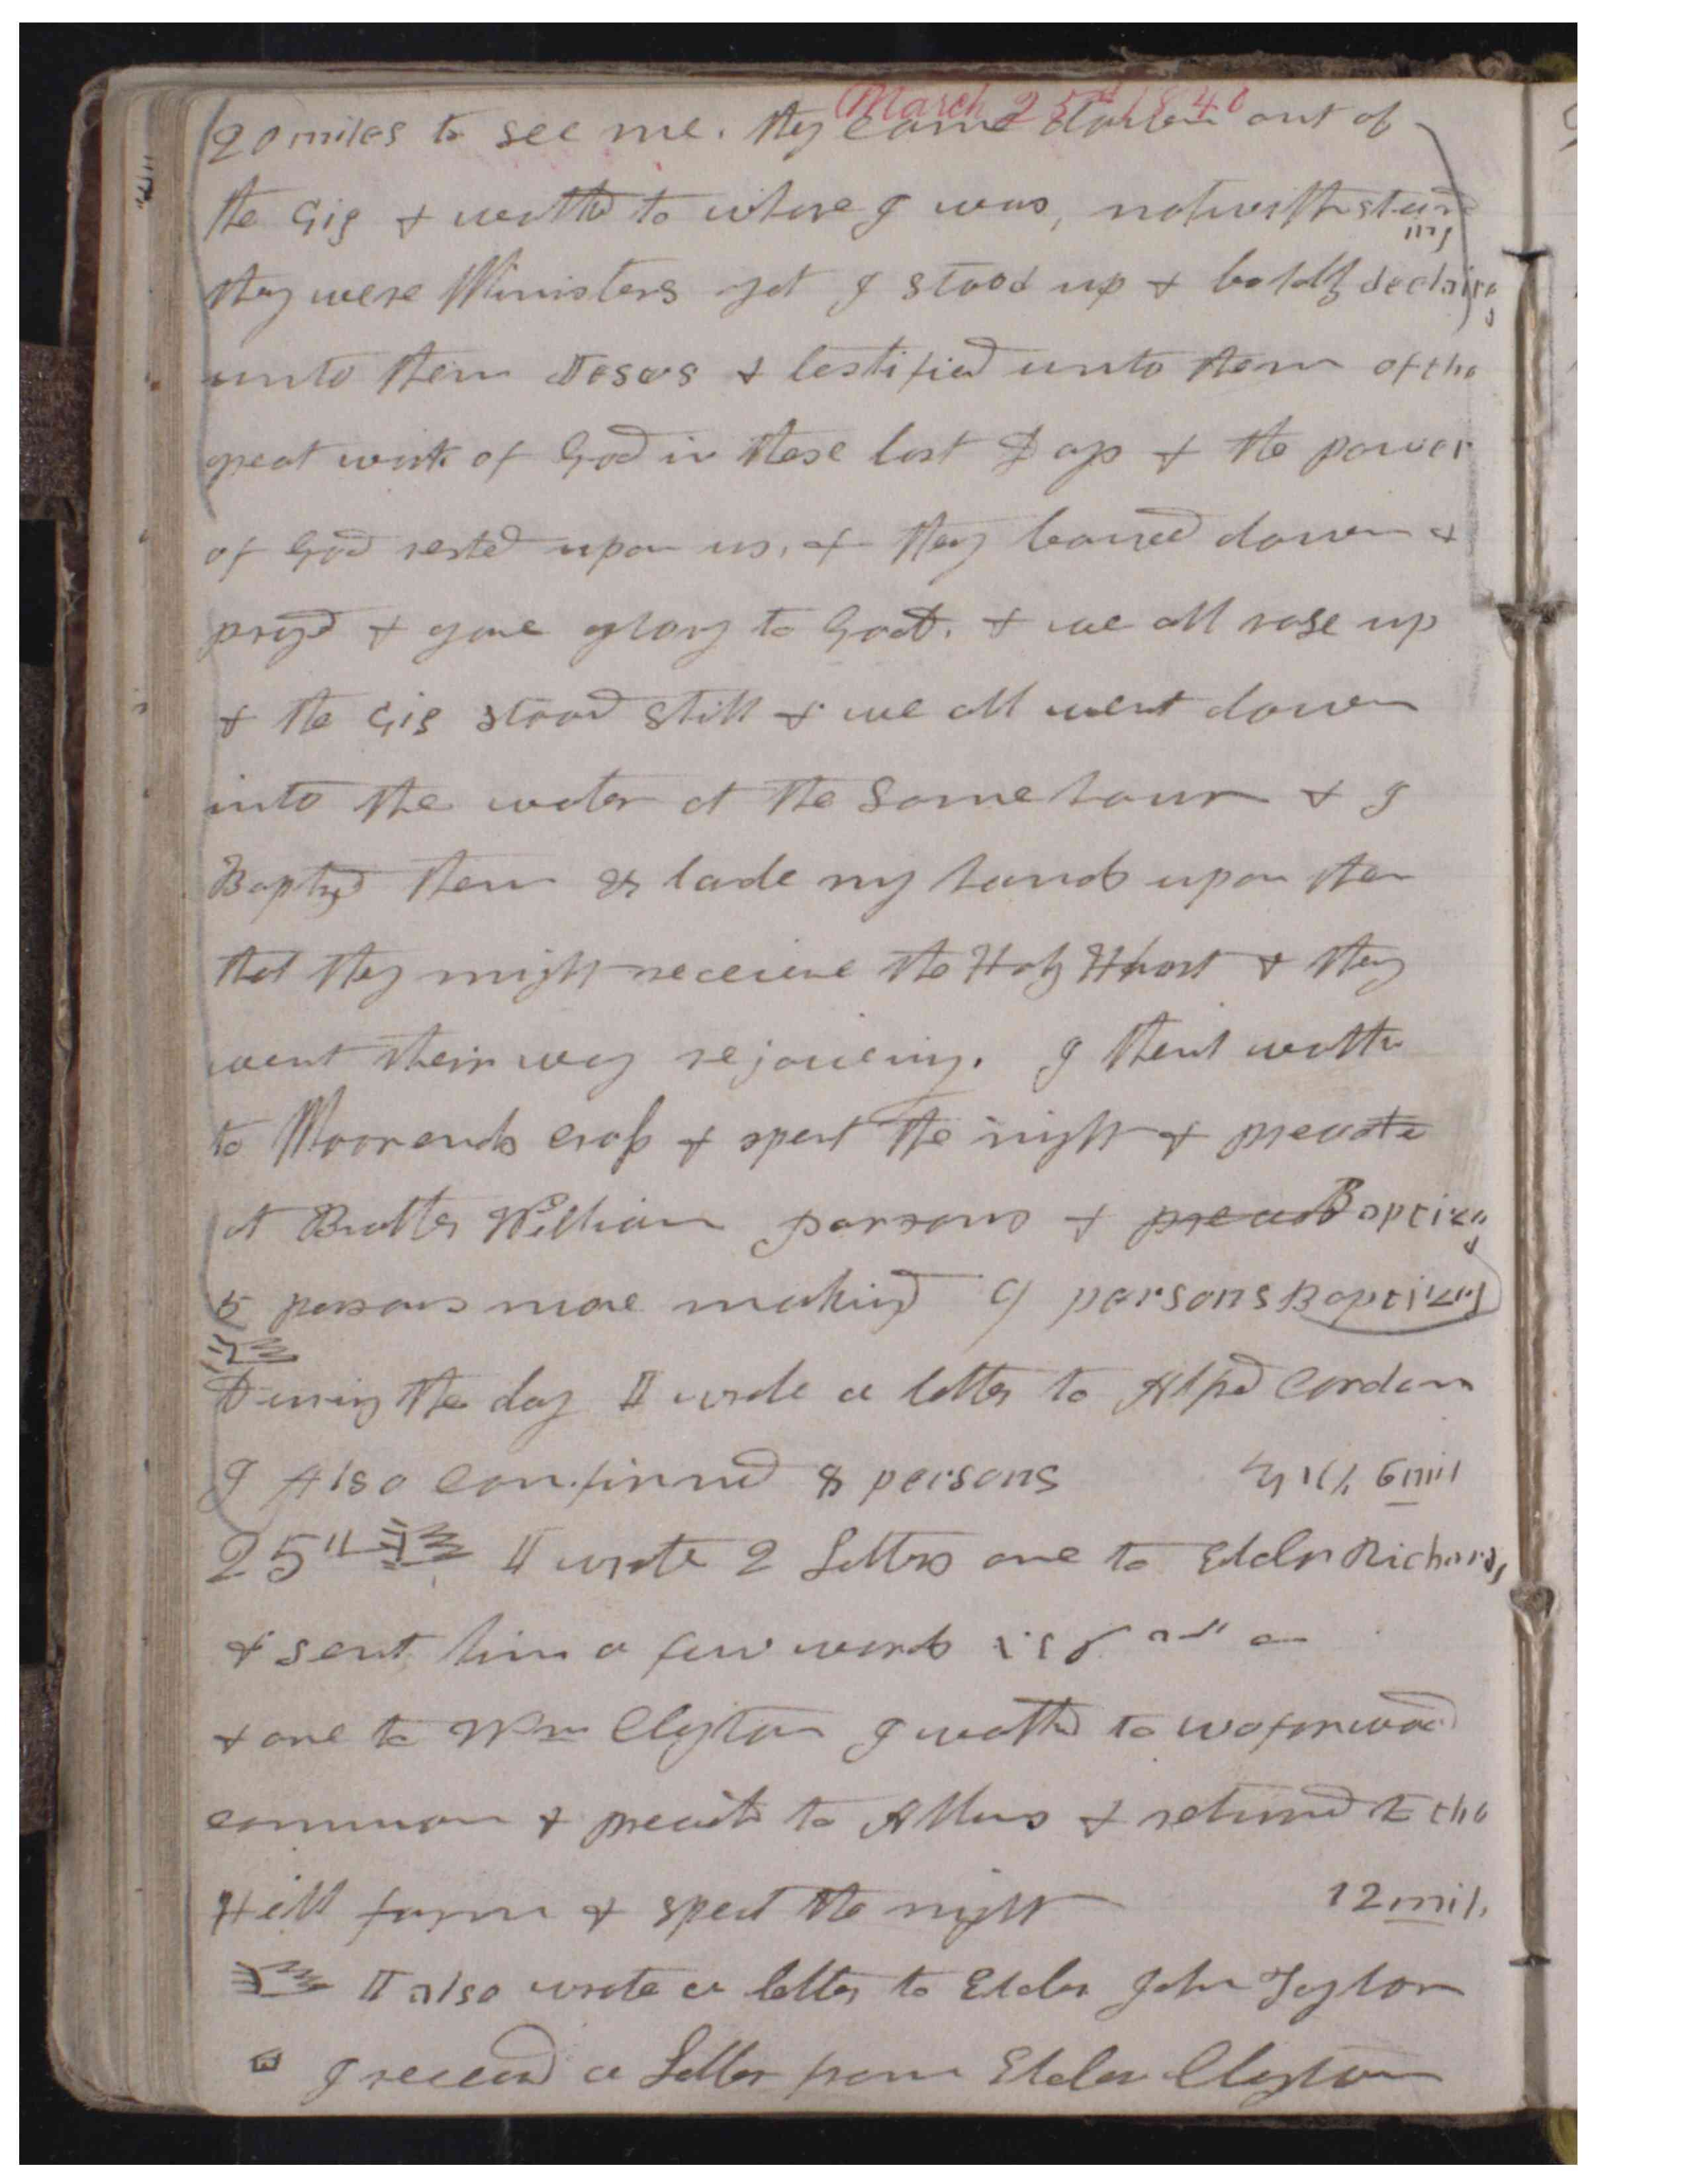 March 25th 1840
20 miles to see me. They came down out of
the Gig & walked to whare I was, notwithstand
ing
they were Ministers yet I stood up & boldly declaired
unto them Jesus & testified unto them of the
great work of God in these last Days & the power
of God rested upon us, & they bowed down &
prayd & gave glory to God. & we all rose up
& the Gig stood still & we all went down
into the water at the same hour & I
Baptized them & lade my hands upon them
that they might receieve the Holy Ghost & they
went their way rejoiceing. I then walked
to Moorends cross & spent the night & preached
at Brother William parsons & Baptized
5 persons more making 9 persons Baptized
During the day I wrote a letter to Alfred Cordon
I Also confirmed 8 persons 6 mil
25th I wrote 2 Letters one to Elder Richards
& sent him a few words
& one to Wm Clayton I walked to wofferwood
common & preached to Allens & returned to the
Hill farm & spent the night 12 mil.
I also wrote a letter to Elder John Taylor
I received a Letter from Elder Clayton